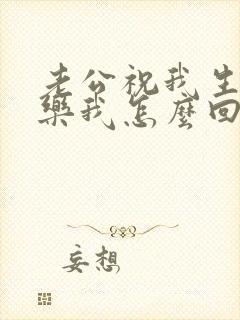 老公祝我生
樂我怎麼回
妄想